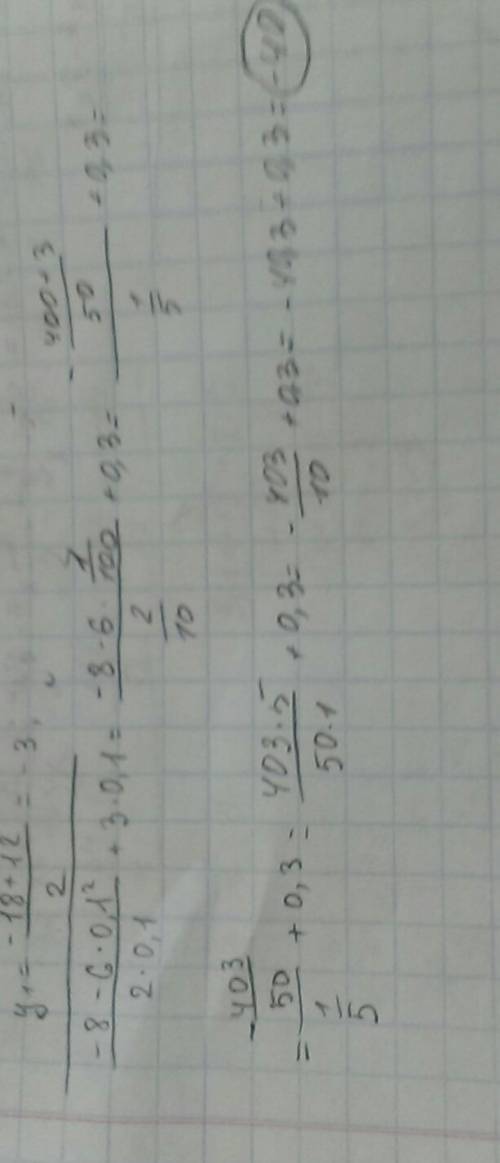 y₁ = (-18+12)/2 = -3,
(-8-6·0,1²)/(2·0,1) + 3·0,1 = (-8-6·1/100)/(2/10) + 0,3 = (-(400+3)/50)/(1/5) + 0,3 =
= (-403/50)/(1/5) + 0,3 = (403·5)/(50·1) + 0,3 = -403/10 + 0,3 = -40,3 + 0,3 = -40